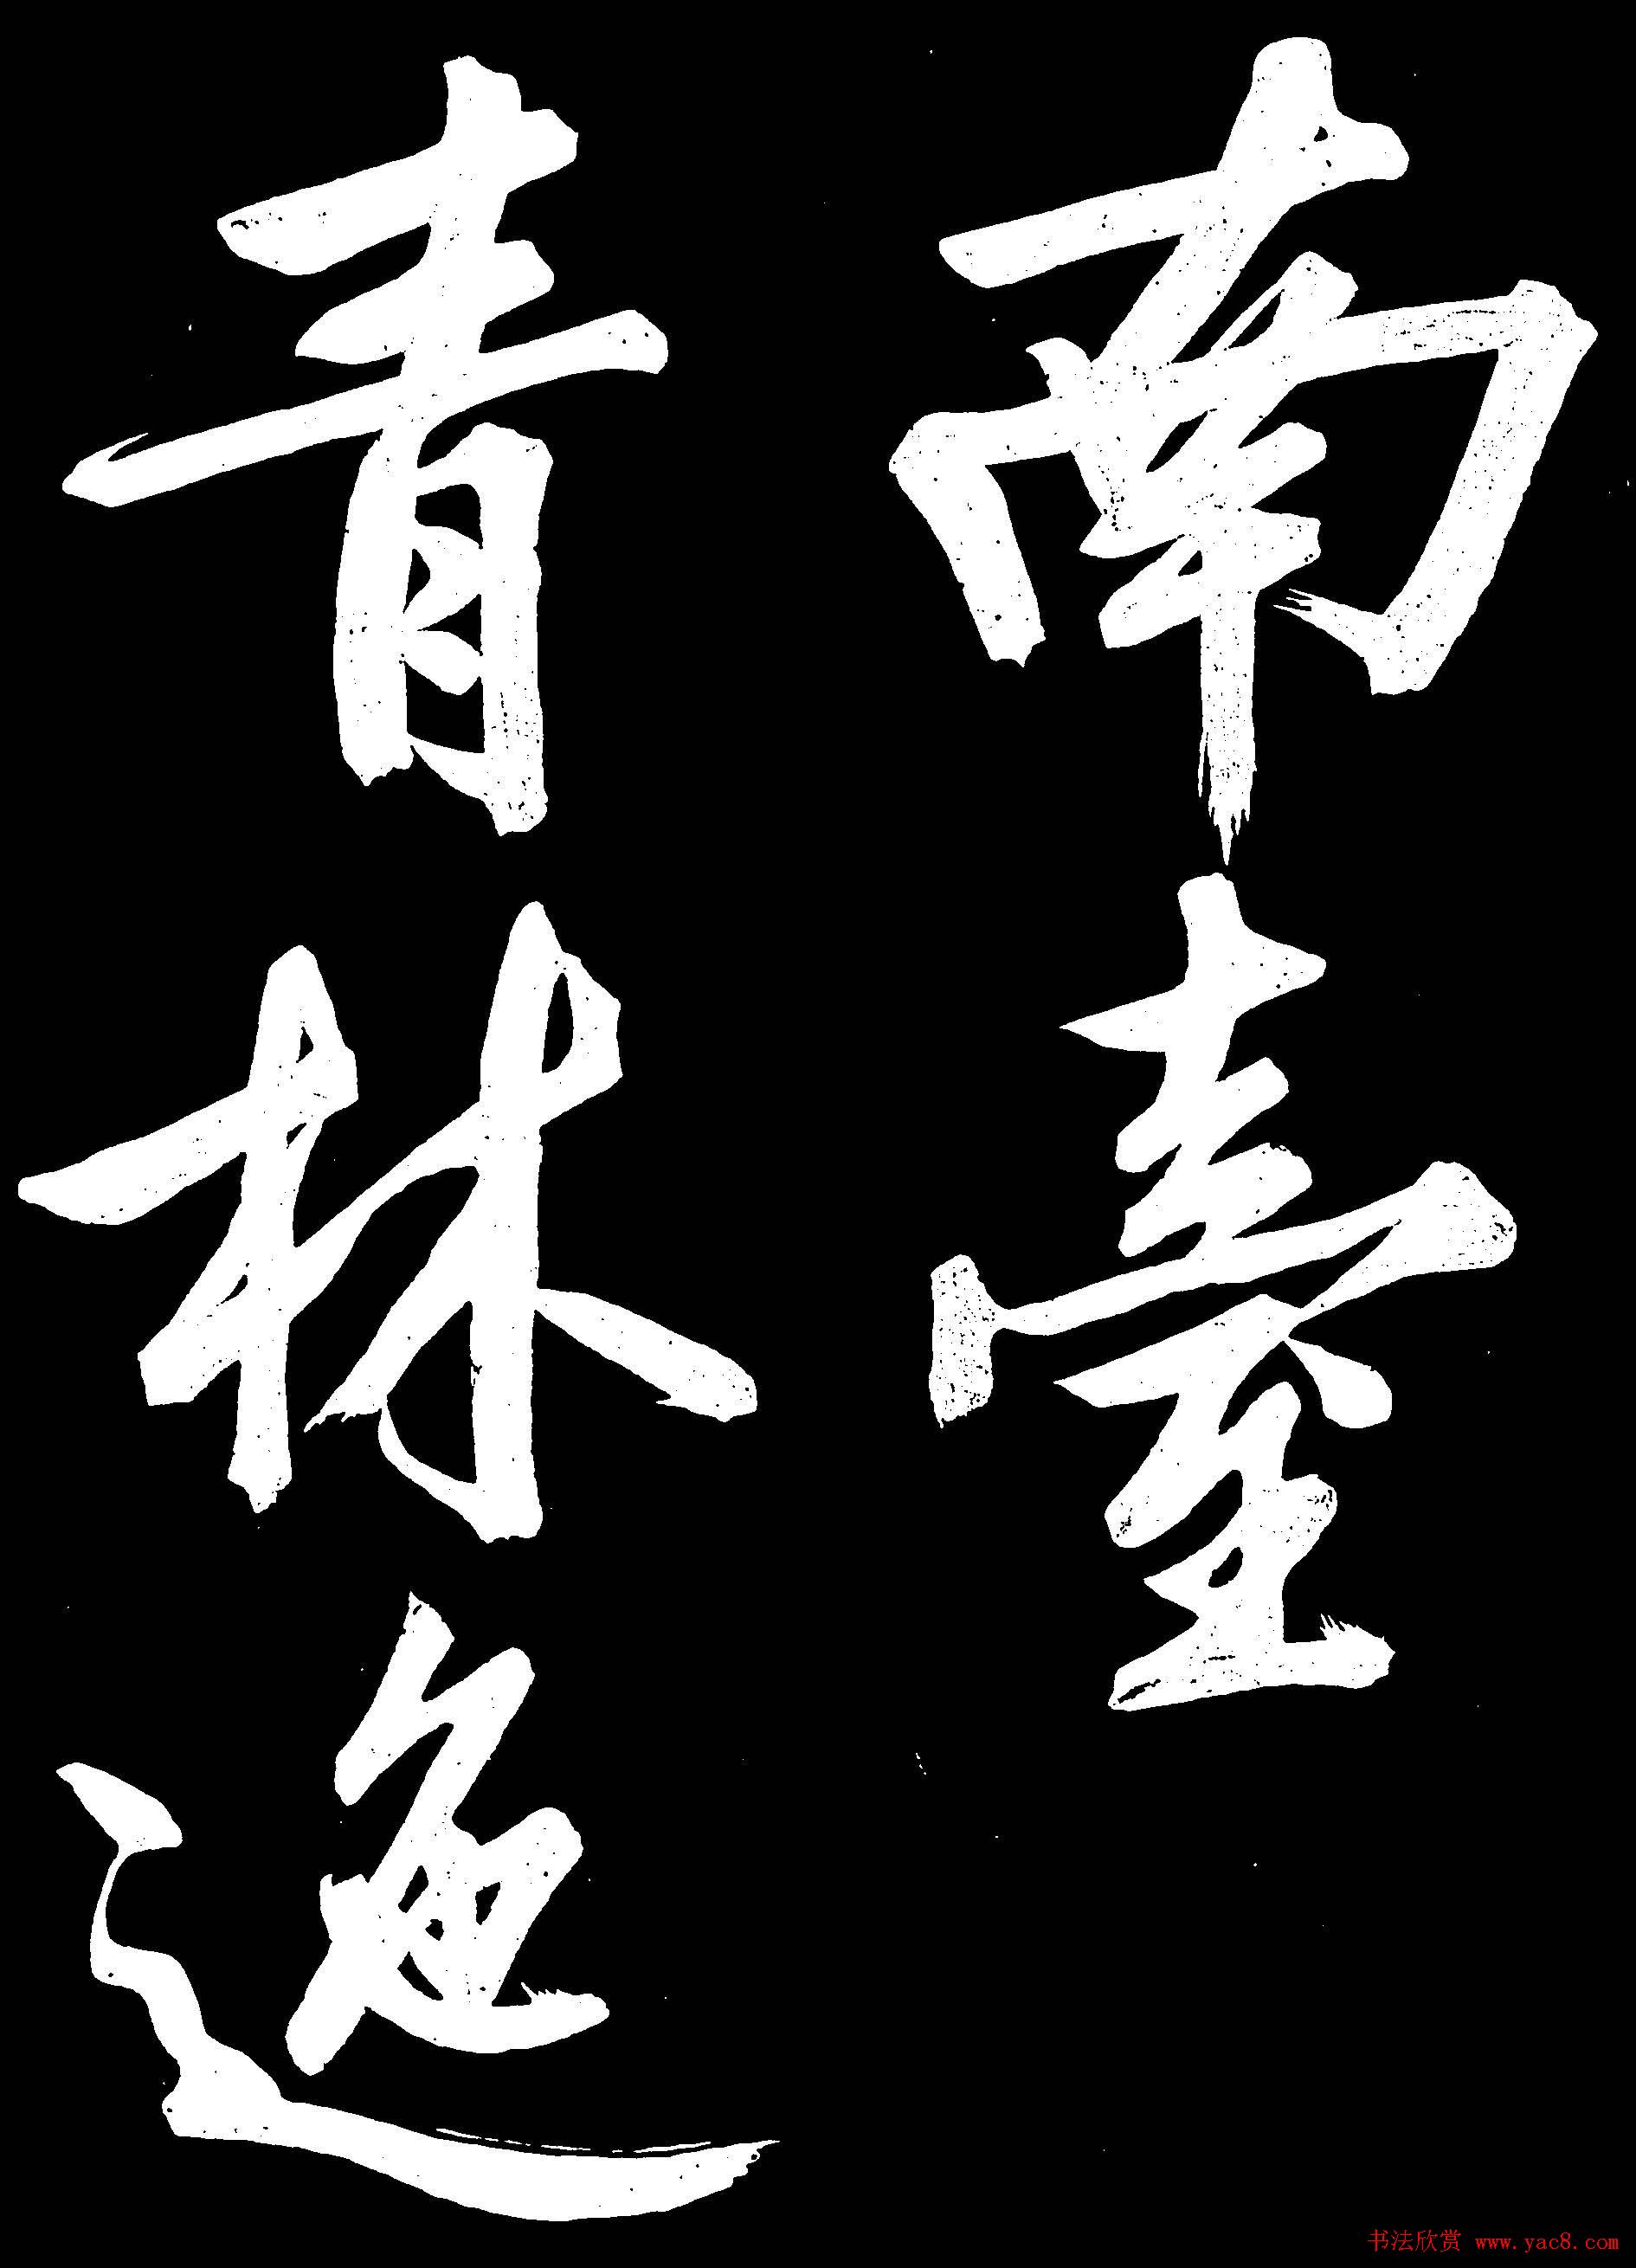 南臺
青林逸
书法欣赏 www.yac8.com